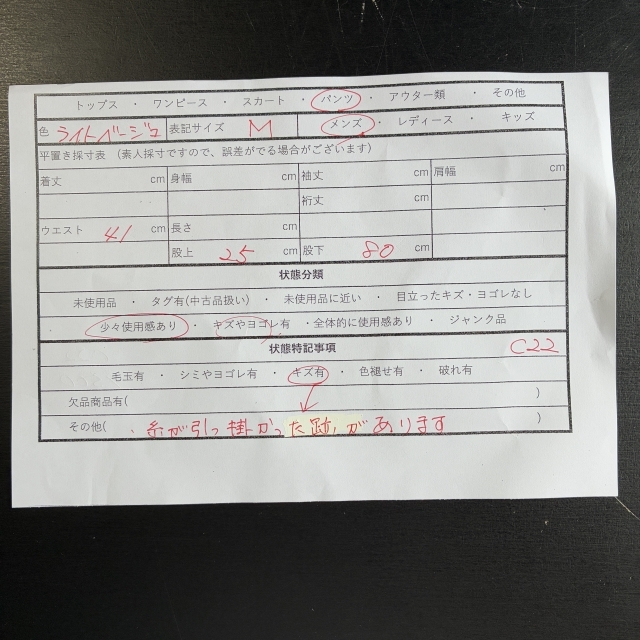 トップス ・ ワンピース ・ スカート ・ パンツ ・ アウター類 ・ その他
色 ライトベージュ 表記サイズ M メンズ ・ レディース ・ キッズ
平置き採寸表 (素人採寸ですので、誤差がでる場合がございます)
着丈 cm 身幅 cm 袖丈 cm 肩幅 cm
裄丈 cm
ウエスト 41 cm 長さ cm
股上 25 cm 股下 80 cm
状態分類
未使用品 ・ タグ有(中古品扱い) ・ 未使用品に近い ・ 目立ったキズ・ヨゴレなし
少々使用感あり ・ キズやヨゴレ有 ・全体的に使用感あり ・ ジャンク品
状態特記事項 C22
毛玉有 ・ シミやヨゴレ有 ・ キズ有 ・ 色褪せ有 ・ 破れ有
欠品商品有( )
その他( 糸が引っ掛かった跡があります )